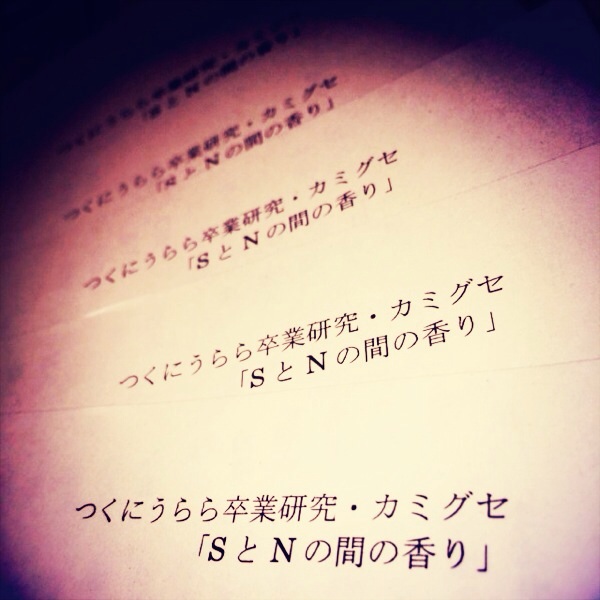 つくにうらら卒業研究・カミグセ
「SとNの間の香り」
つくにうらら卒業研究・カミグセ
「SとNの間の香り」
つくにうらら卒業研究・カミグセ
「SとNの間の香り」
つくにうらら卒業研究・カミグセ
「SとNの間の香り」
つくにうらら卒業研究・カミグセ
「SとNの間の香り」